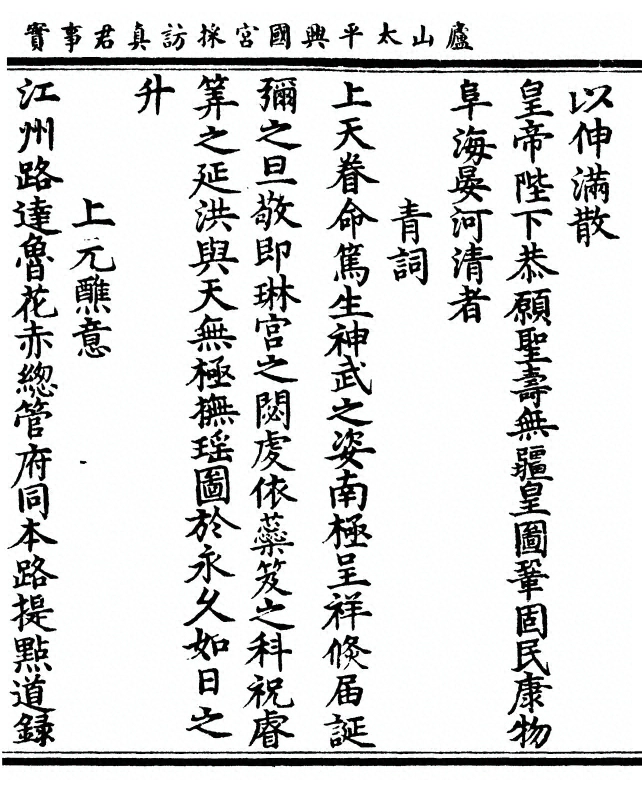 廬山太平興國宮採訪真君事實
以伸滿散
皇帝陛下恭願聖壽無疆皇圖鞏固民康物
阜海晏河清者
青詞
上天眷命篤生神武之姿南極呈祥倏届誕
彌之旦敬即琳宮之閟䖏依蘂笈之科祝睿
筭之延洪與天無極撫瑶圖於永久如日之
升
上元醮意
江州路達魯花赤緫管府同本路提點道録